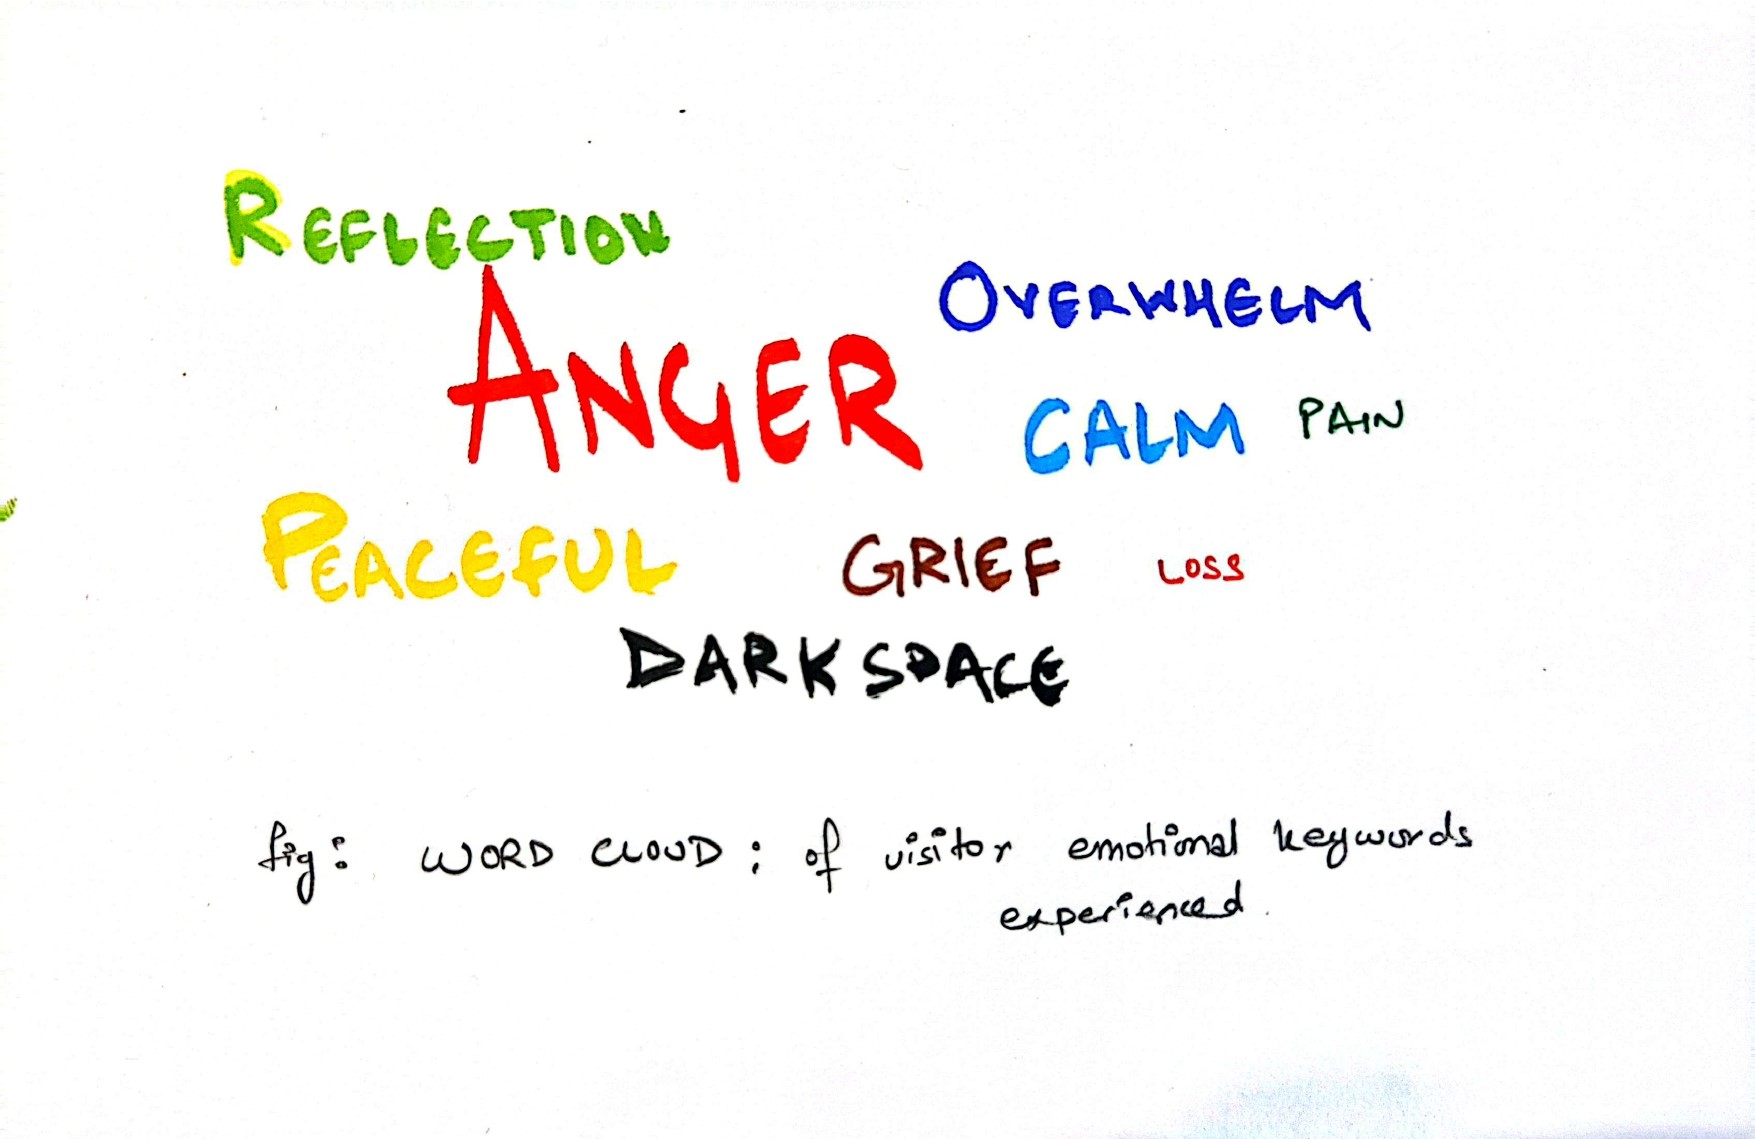 REFLECTION
ANGER
OVERWHELM
CALM PAIN
PEACEFUL GRIEF LOSS
DARK SPACE
fig: WORD CLOUD: of visitor emotional keywords
experienced.